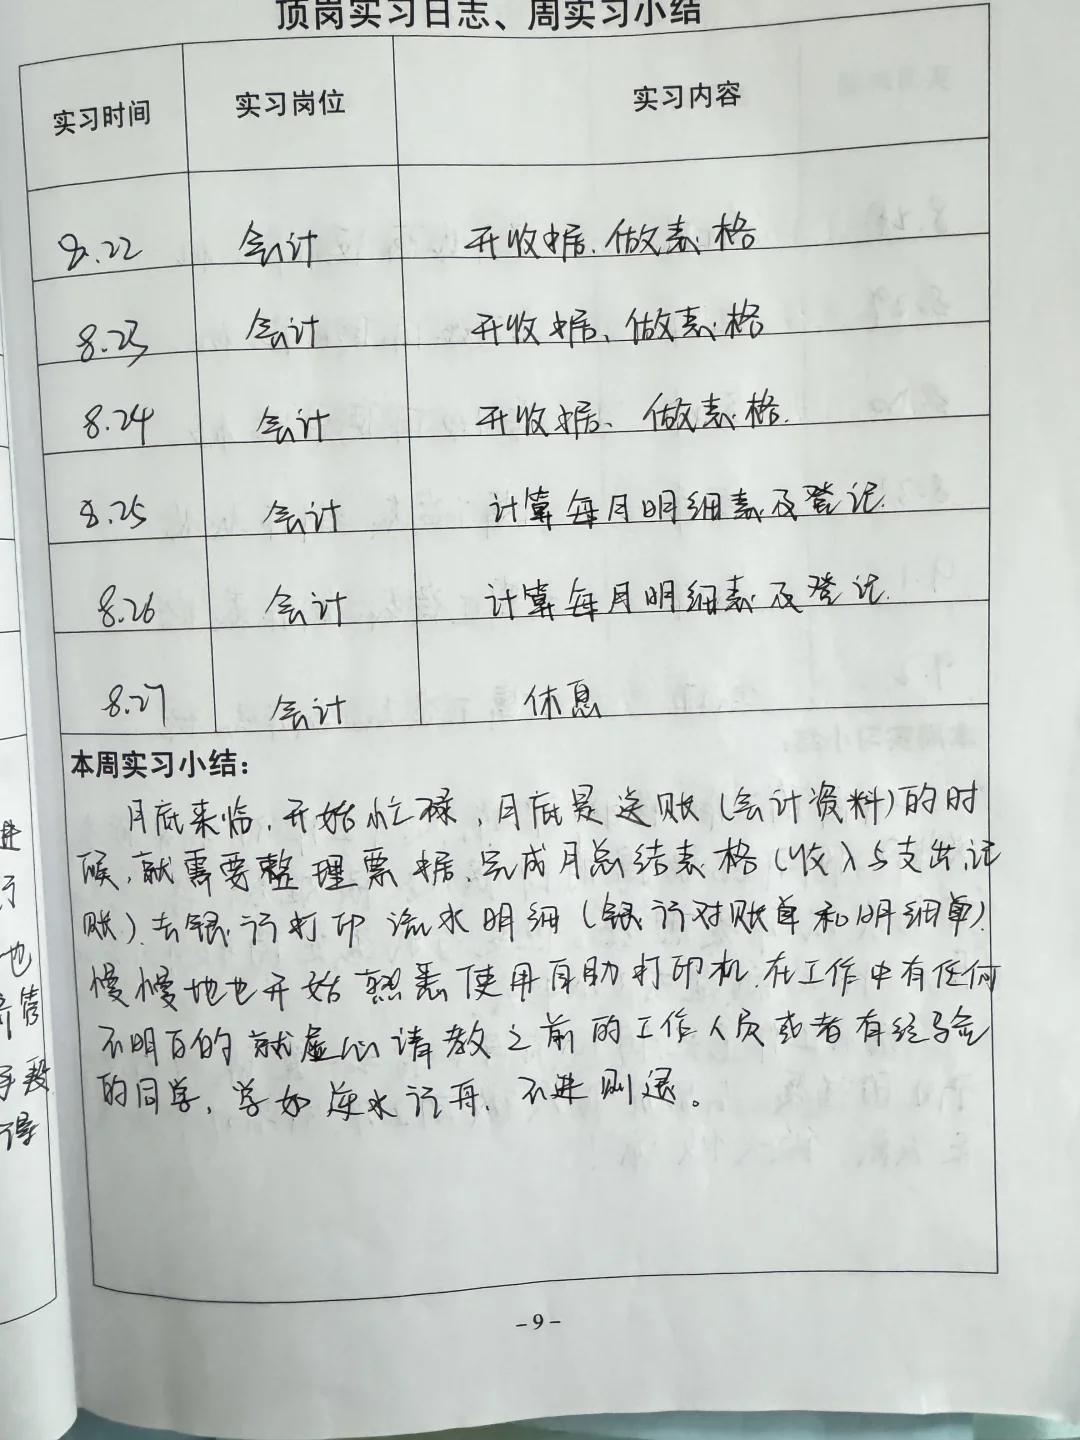 顶岗实习日志、周实习小结
实习时间 实习岗位 实习内容
8.22 会计 开收据、做表格
8.23 会计 开收据、做表格
8.24 会计 开收据、做表格.
8.25 会计 计算每月明细表及登记.
8.26 会计 计算每月明细表及登记.
8.27 会计 休息
本周实习小结：
月底来临，开始忙碌，月底是送账（会计资料）的时
候，就需要整理票据、完成月总结表格（收入与支出记
账）、去银行打印流水明细（银行对账单和明细单）.
慢慢地也开始熟悉使用自助打印机.在工作中有任何
不明白的就虚心请教之前的工作人员或者有经验
的同学，学如逆水行舟，不进则退。
-9-